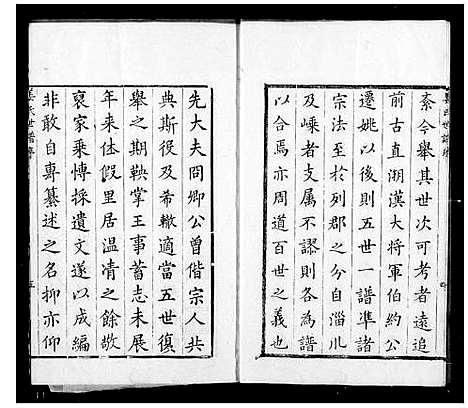 紊今舉其世次可考者遠追
前古直溯漢大將軍伯約公
遷姚以後則五世一譜準諸
宗法至於列郡之分自淄川
及嵊者支屬不謬則各為譜
以合焉亦周道百世之義也
先大夫問卿公曾偕宗人共
典斯役及希轍適當五世復
舉之期鞅掌王事蓄志未展
年來休假里居溫凊之餘敬
裒家乘博採遺文遂以成編
非敢自專纂述之名抑亦仰
姜氏世譜